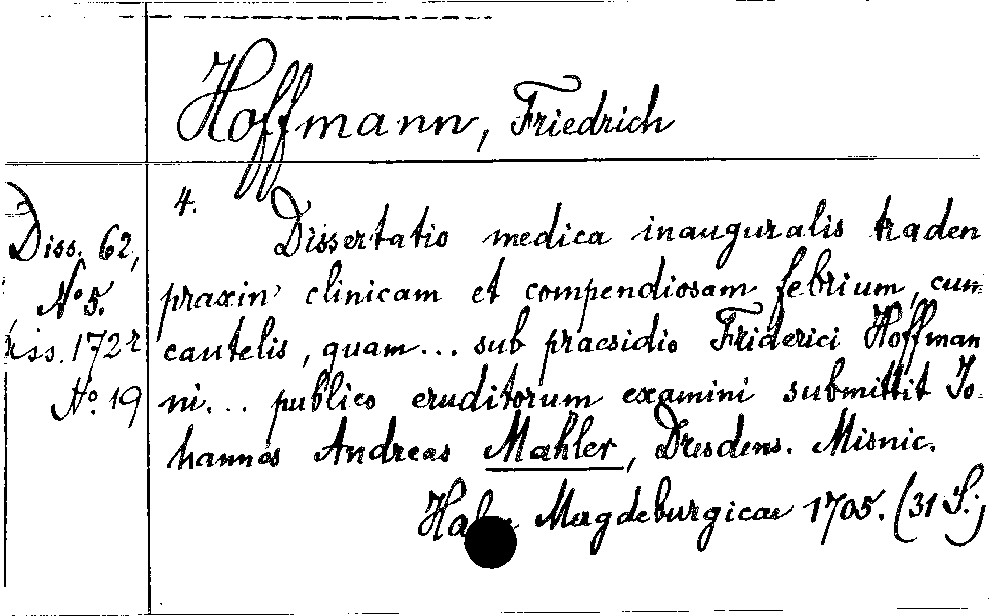 Hoffmann, Friedrich
4.
Diss. 62,
No 5.
Diss. 172 r
No. 19
Dissertatio medica inauguralis traden
praxin clinicam et compendiosam febrium, cum
cautelis, quam... sub praesidio Friderici Hoffman
ni... publico eruditorum examini submittit Jo-
hannes Andreas Mahler, Dresdens. Misnic.
Magdeburgicae 1705. (31 S.)